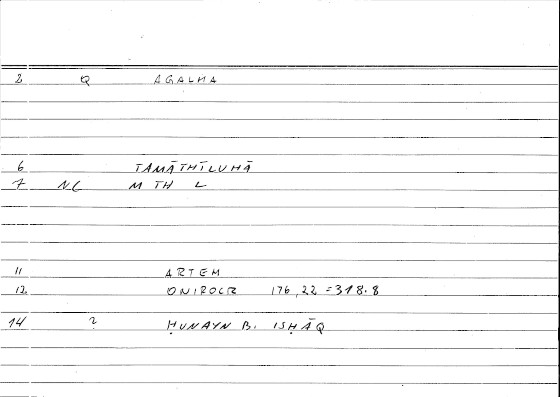 2 Q AGALMA
6 TAMĀTHĪLUHĀ
7 NC M TH L
11 ARTEM
12 ONIROCR 176,22 = 318.8
14 ? ḤUNAYN B. ISḤĀQ